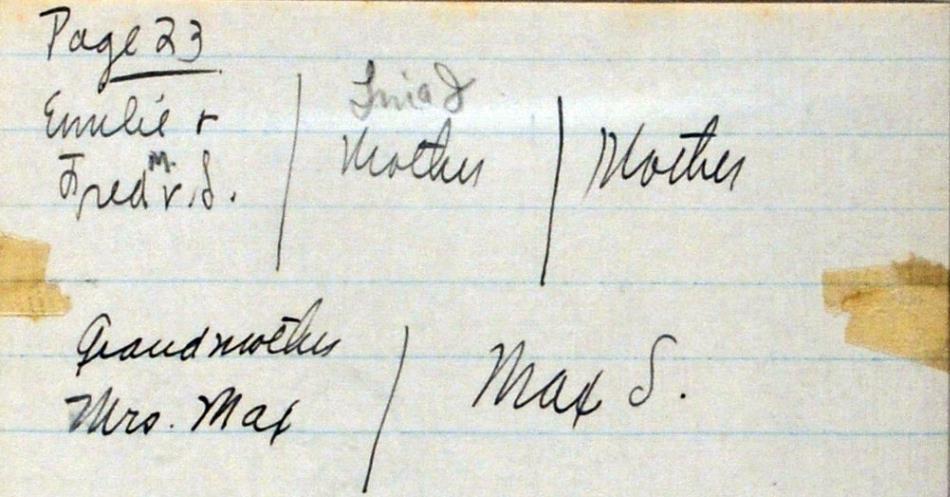 Page 23
Emilie &
Fred M. v. S.
Mother
Mother
Grandmother
Mrs. Max
Max S.